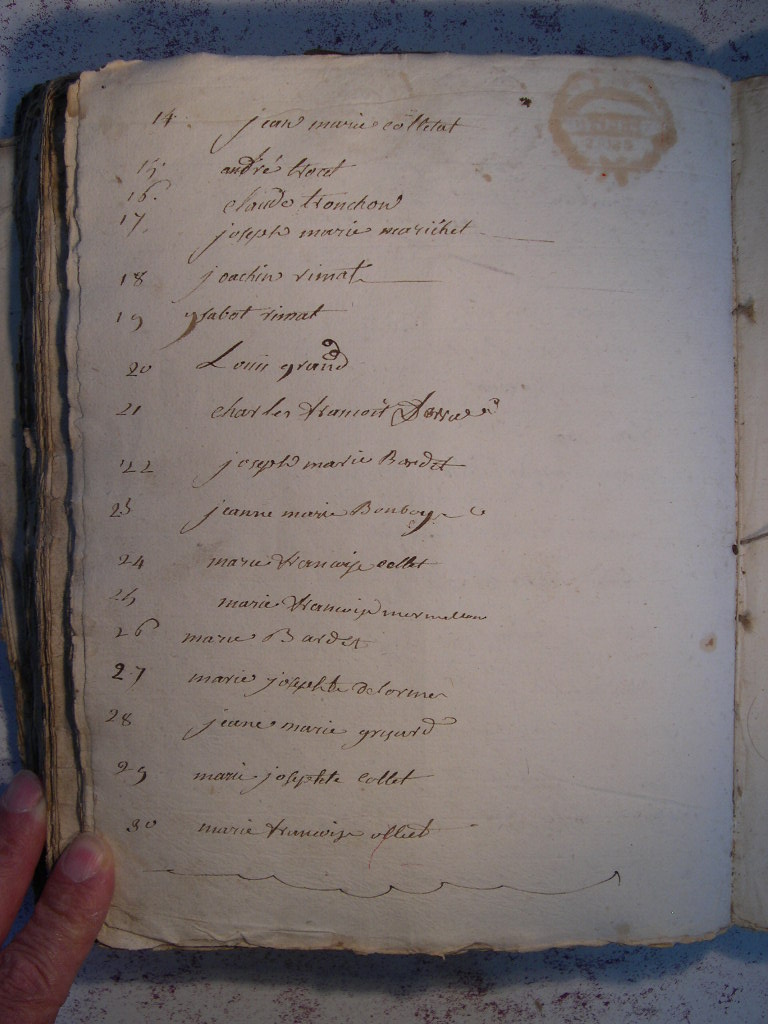 14 jean marie colletat
15 andré trocet
16 claude tronchon
17 joseph marie marichet
18 joachin rimat
19 ysabot rimat
20 Louis grand
21 charles francois
22 joseph marie Bardet
23 jeanne marie
24 marie francoise collet
25 marie francoise
26 marie Bardet
27 marie josephte delorme
28 jeane marie
29 marie josephte collet
30 marie francoise olliet